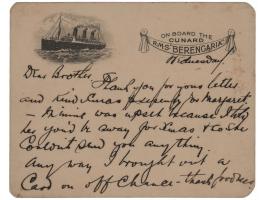 ON BOARD THE
CUNARD
R.M.S. "BERENGARIA"
Wednesday
Dear Brother,
Thank you for your letter
and kind Xmas for Margaret
- Minnie was upset because I told
her you'd be away for Xmas & to she
couldn't send you anything.
Any way I brought out a
Card on off chance - thank goodness